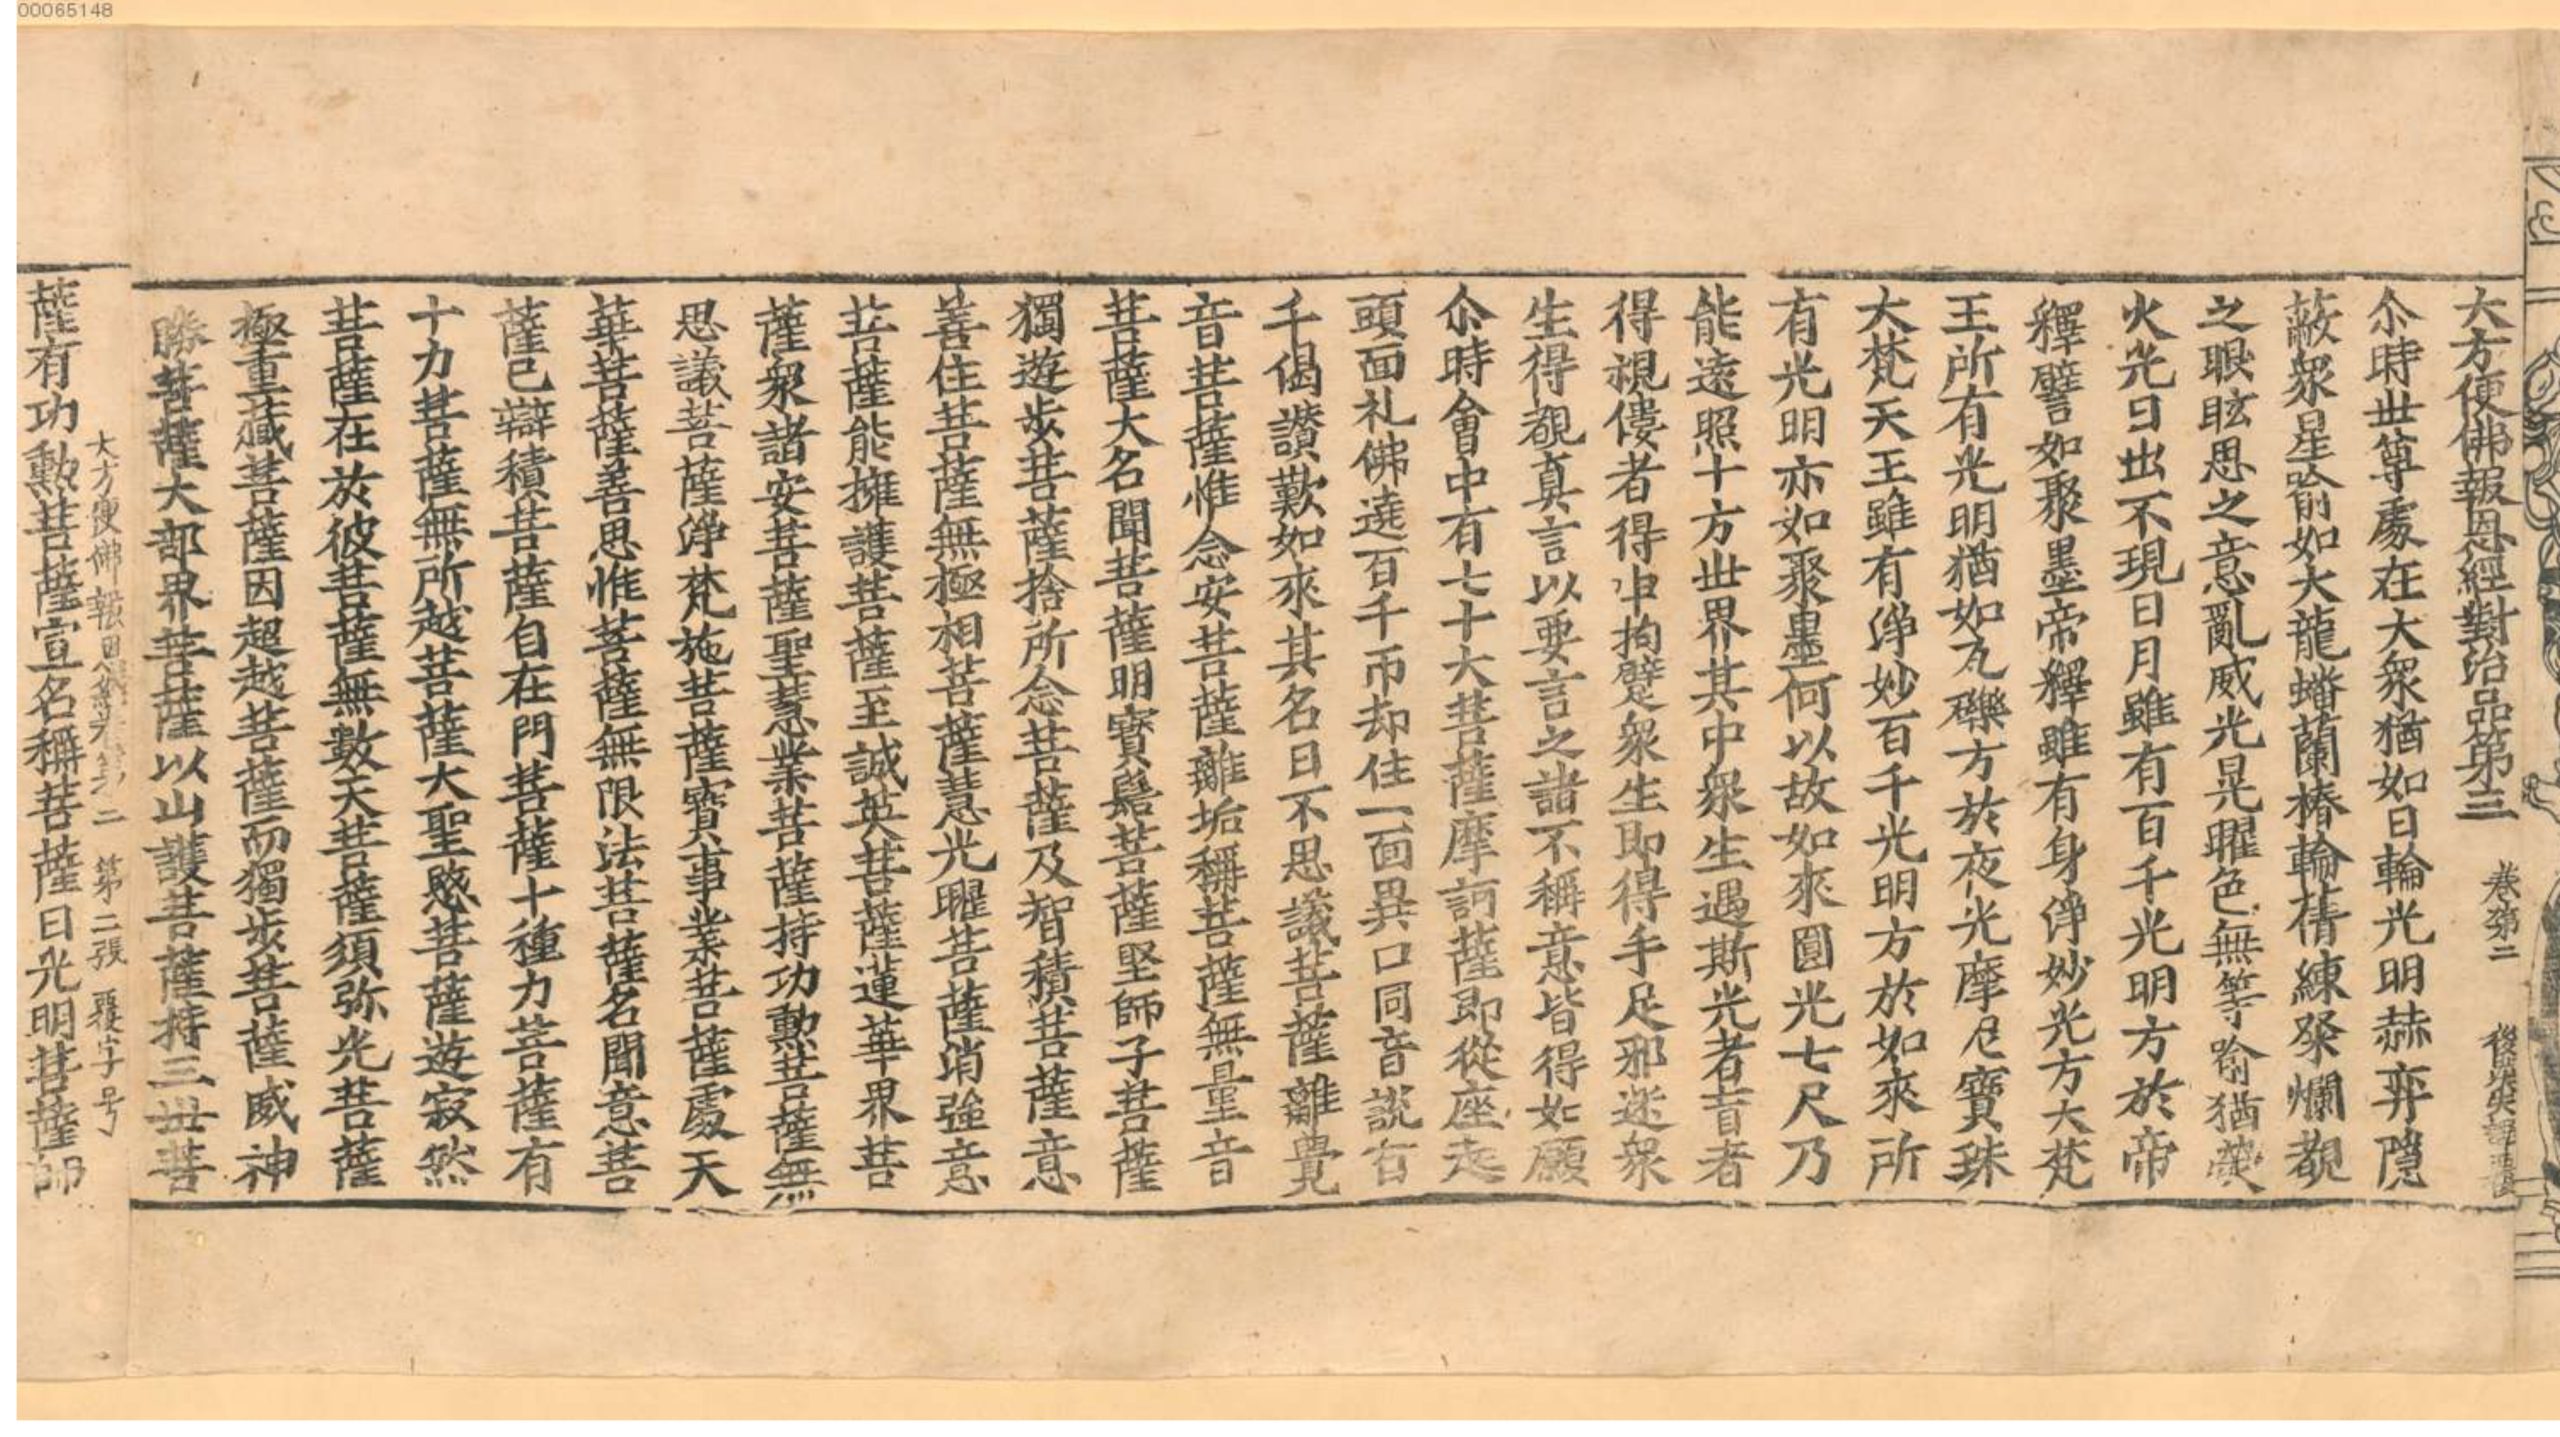 00065148
大方便佛報恩經對治品第三 卷第二 後漢失譯
尒時世尊處在大衆猶如日輪光明赫弈隱
蔽衆星喻如大龍蟠蘭椿輪蒨練粲爛覩
之眼眩思之意亂威光晃曜色無等喻猶
火光日出不現日月雖有百千光明方於帝
釋譬如聚墨帝釋雖有身淨妙光方大梵
王所有光明猶如瓦礫方於夜光摩尼寶珠
大梵天王雖有淨妙百千光明方於如來所
有光明亦如聚墨何以故如來圓光七尺乃
能遠照十方世界其中衆生遇斯光者盲者
得視僂者得申拘躄衆生即得手足邪迷衆
生得覩真言以要言之諸不稱意皆得如願
尒時會中有七十大菩薩摩訶薩即從座起
頭面礼佛遶百千帀却住一面異口同音說百
千偈讚歎如來其名曰不思議菩薩離覺
音菩薩惟念安菩薩離垢稱菩薩無量音
菩薩大名聞菩薩明寶髻菩薩堅師子菩薩
獨遊步菩薩捨所念菩薩及智積菩薩意
善住菩薩無極相菩薩慧光曜菩薩消強意
菩薩能擁護菩薩至誠英菩薩蓮華界菩
薩衆諸安菩薩聖慧業菩薩持功勳菩薩無
思議菩薩淨梵施菩薩寶事業菩薩處天
華菩薩善思惟菩薩無限法菩薩名聞意菩
薩已辯積菩薩自在門菩薩十種力菩薩有
十力菩薩無所越菩薩大聖愍菩薩遊寂然
菩薩在於彼菩薩無數天菩薩須弥光菩薩
極重藏菩薩因超越菩薩而獨步菩薩威神
勝菩薩大部界菩薩以山護菩薩持三世菩
大方便佛報恩經卷第二 第二張 覆字号
薩有功勳菩薩宣名稱菩薩日光明菩薩師